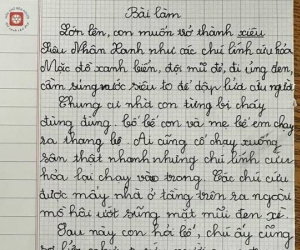 Bài làm
Lớn lên, con muốn trở thành siêu
Siêu Nhân Xanh như các chú lính cứu hỏa
Mặc đồ xanh biển, đội mũ đỏ, đi ủng đen,
cầm súng nước siêu to để dập lửa cứu người
Chung cư nhà con từng bị cháy
đùng đùng. Bố bế con và mẹ bế em chạy
ra thang bộ. Ai cũng cố chạy xuống
sân thật nhanh nhưng chú lính cứu
hỏa lại chạy vào trong. Các chú cứu
được mấy nhà ở tầng trên ra ngoài
mồ hôi ướt sũng mặt mũi đen xì.
Sau này con hỏi bố, chú ấy cũng